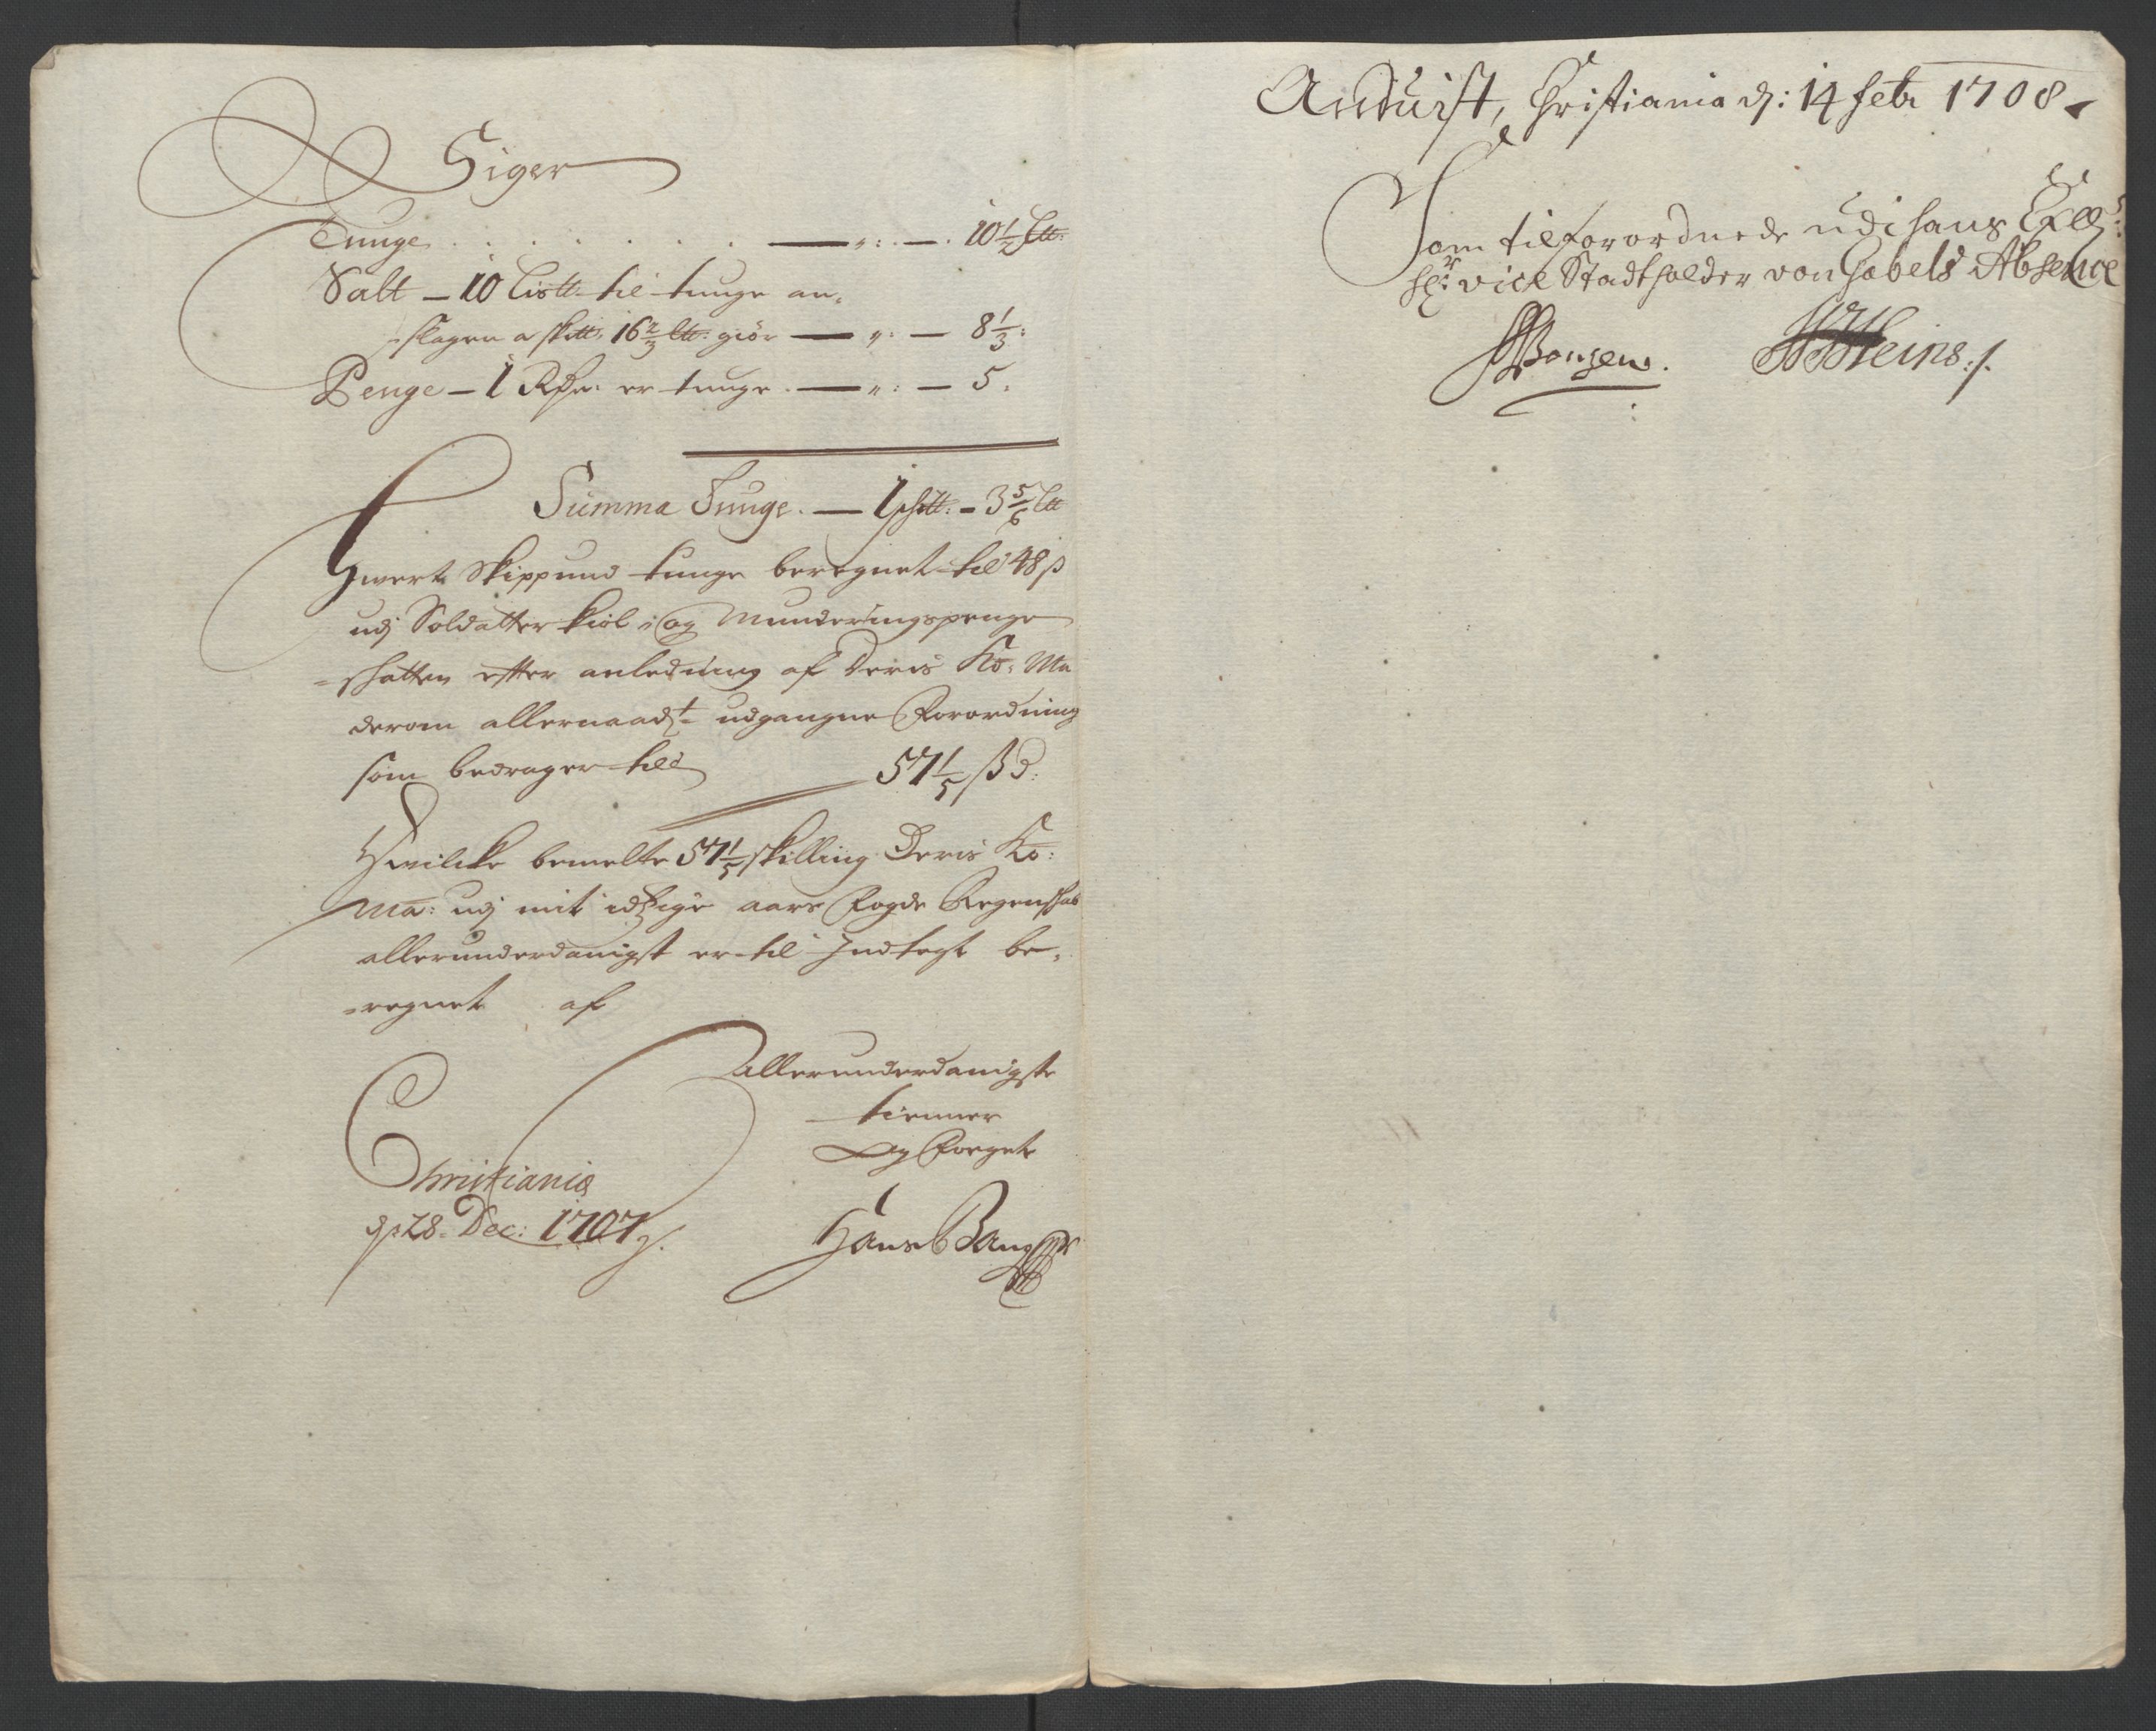 Siger
Tunge . . . . . . . — „: — . 10½ Ltt:
Salt – 10 Listt: til tunge an-
slagen a skitt: 16⅔ Ltt: giör — „: — 8⅓:
Penge – 1 Rdr: er tunge . — „: — 5.
Summa Tunge. — 1 schtt: – 3⅚ Ltt
Hvert Skippund tunge beregnet til 48 ß
udj Soldatter kiol- og Munderingspenge
-schatten efter anledning af Deris Ko: Ma
derom allernaadt- udgangne Forordning
som bedrager til 57⅕ ß d:
Hvilcke bemelte 57⅕ skilling Deris Ko:
Ma: udj mit idtzige aars Fogde Regenskab
allerunderdanigst er til Indtegt be-
-regnet af
Allerunderdanigste
tienner
og Foeget
Christiania
d: 28. Dec: 1707
Hans Bang
Anduist, Christiania d: 14 febr 1708
Som tilforordnede udi hans Exll:
Hr: vice Stadtholder von Gabels Absence